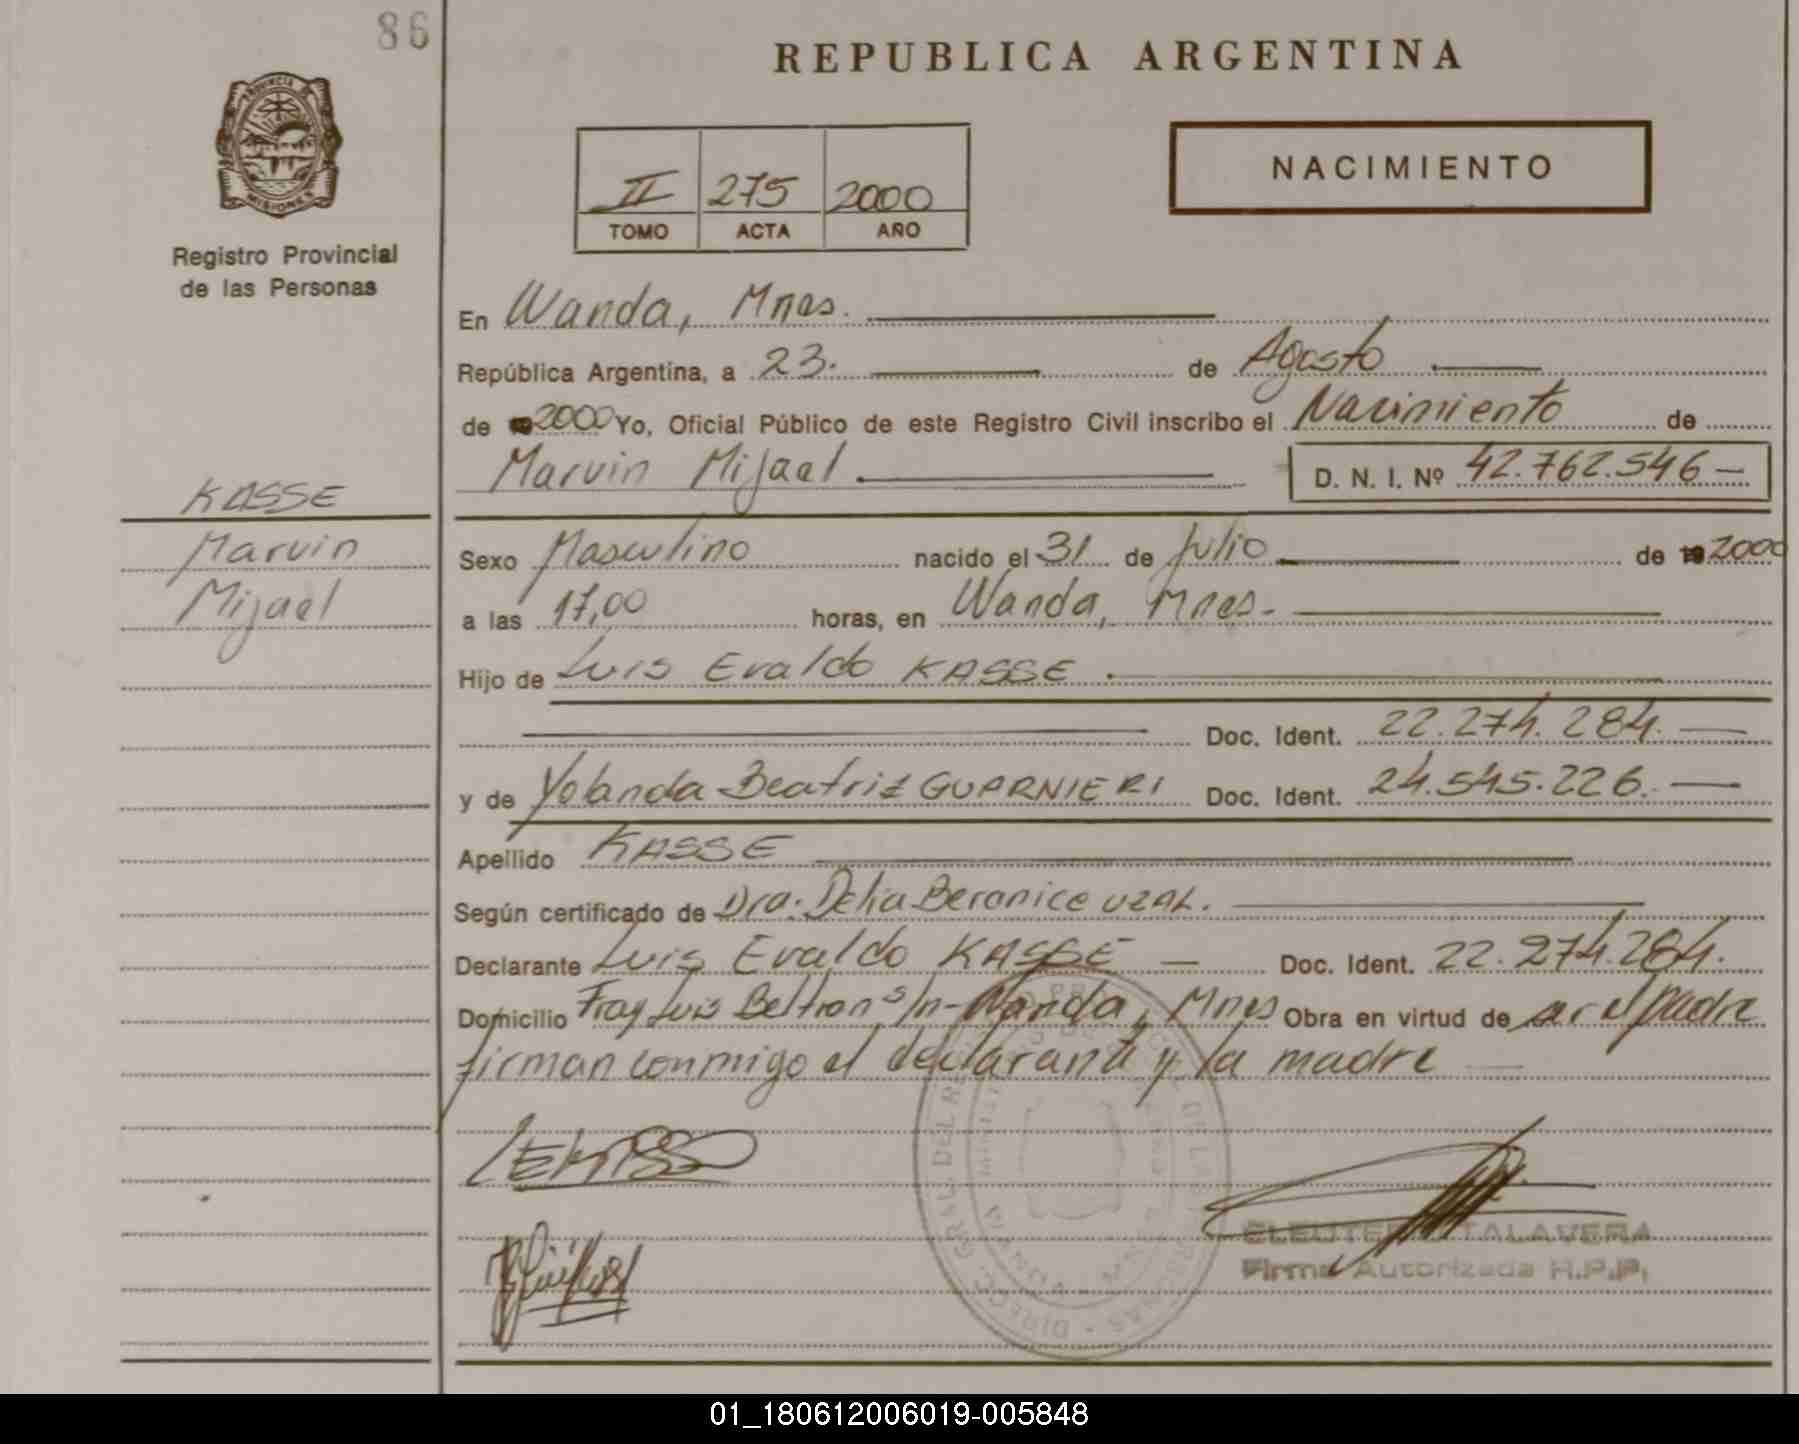 86
REPUBLICA ARGENTINA
PROVINCIA DE
MISIONES
Registro Provincial
de las Personas
NACIMIENTO
II 275 2000
TOMO ACTA AÑO
En Wanda, Mnes.
República Argentina, a 23. de Agosto
de 2000 Yo, Oficial Público de este Registro Civil inscribo el Nacimiento de
Marvin Mijael D. N. I. Nº 42.762.546
KASSE
Marvin
Mijael
Sexo Masculino nacido el 31 de Julio de 19 2000
a las 17,00 horas, en Wanda, Mnes.
Hijo de Luis Evaldo KASSE
Doc. Ident. 22.274.284.
y de Yolanda Beatriz GUARNIERI Doc. Ident. 24.545.226.
Apellido KASSE
Según certificado de Dra. Delia Beronice UZAL.
Declarante Luis Evaldo KASSE Doc. Ident. 22.274.284.
Domicilio Fray Luis Beltran s/n - Wanda, Mnes Obra en virtud de ser el padre
firman conmigo el declarante y la madre
TALAVERA
Firma Autorizada R.P.P.
01_180612006019-005848